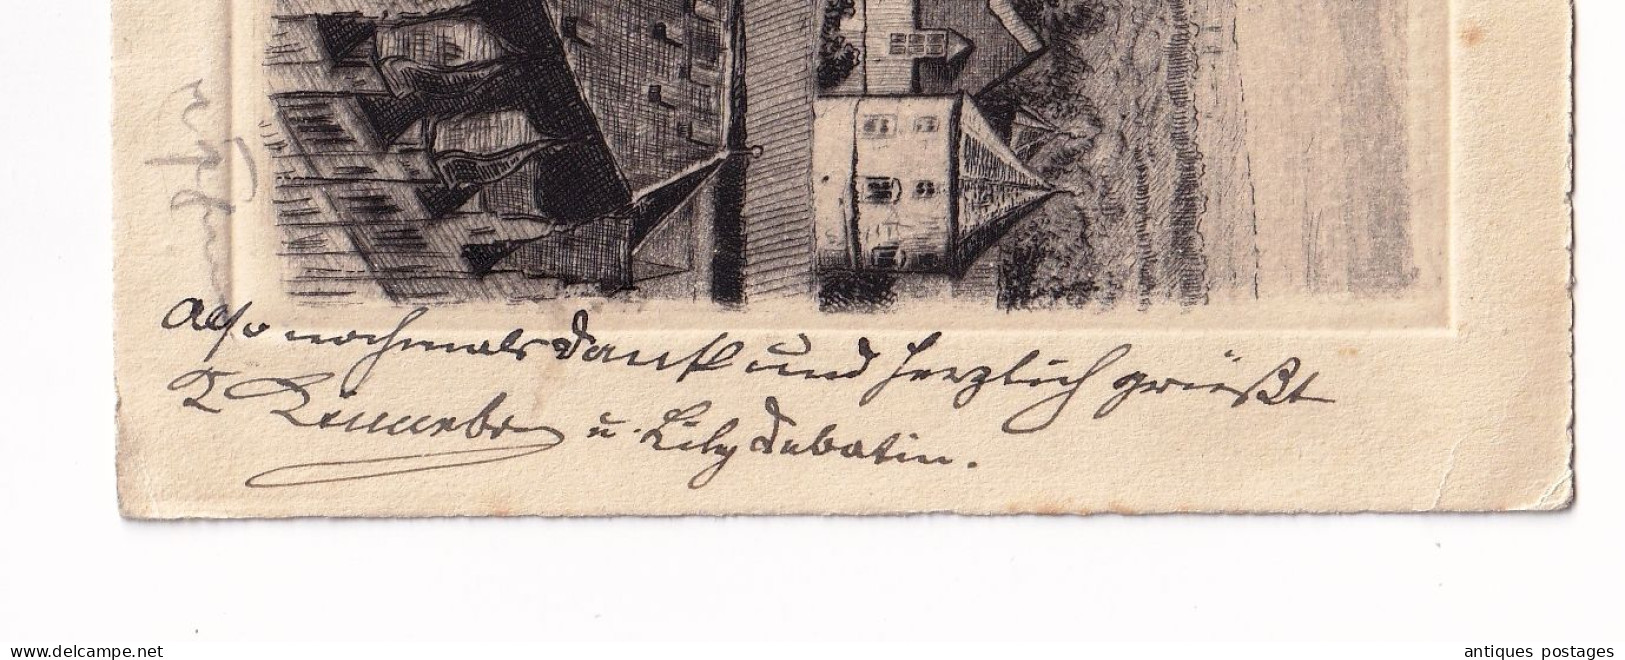 Also nochmals Dank und herzlich grüßt
u. Lily Debatin.
www.delcampe.net
antiques postages